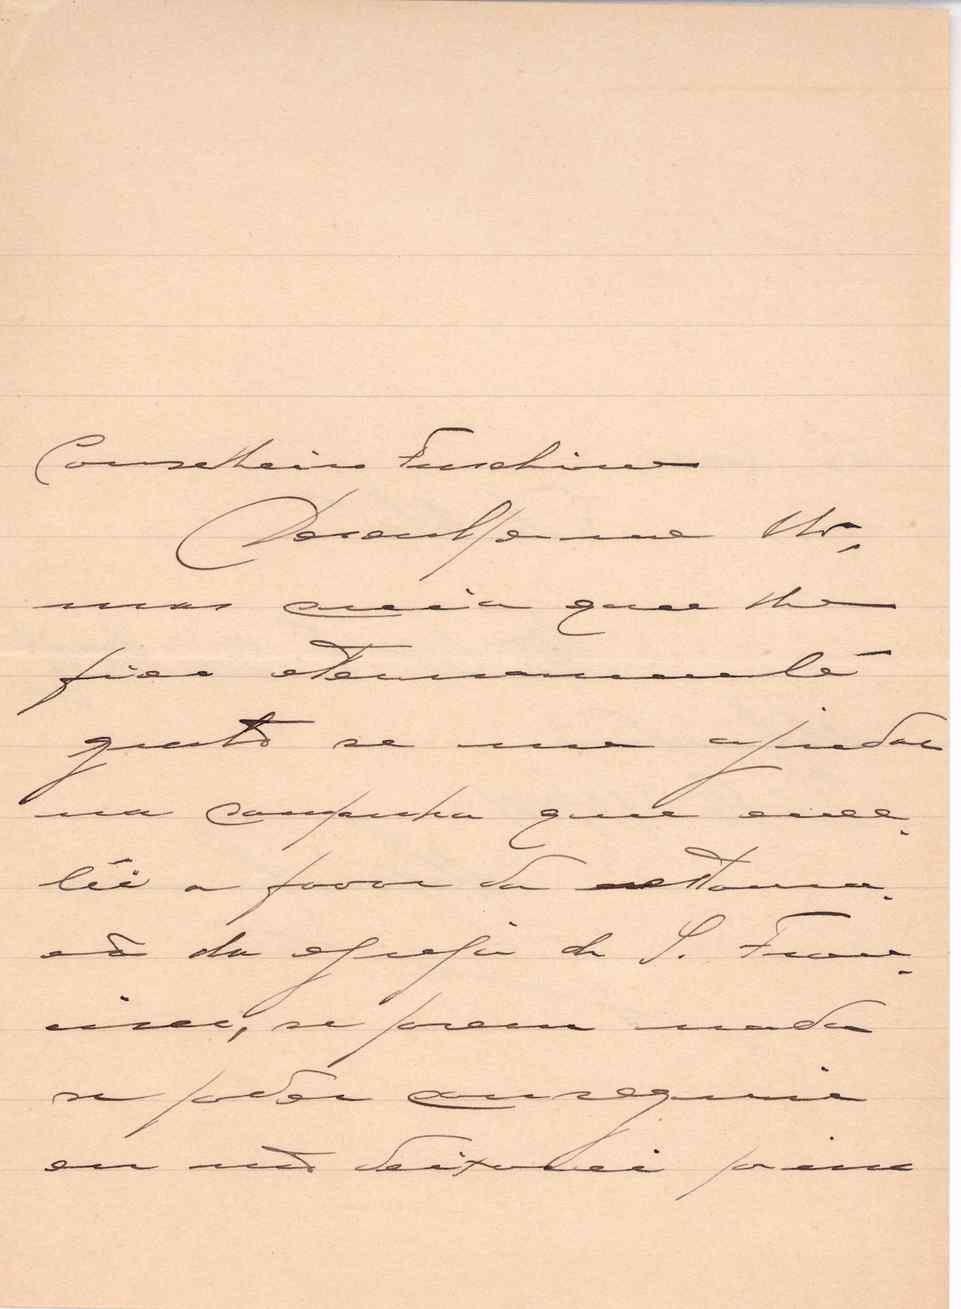 Conselheiro Fuschini
Desculpe-me
mas creia que lhe
fico eternamente
grato se me ajudar
na campanha que encetei
a favor da restauração
da egreja de S. Francisco,
se porem nada
se poder conseguir
eu não deixarei